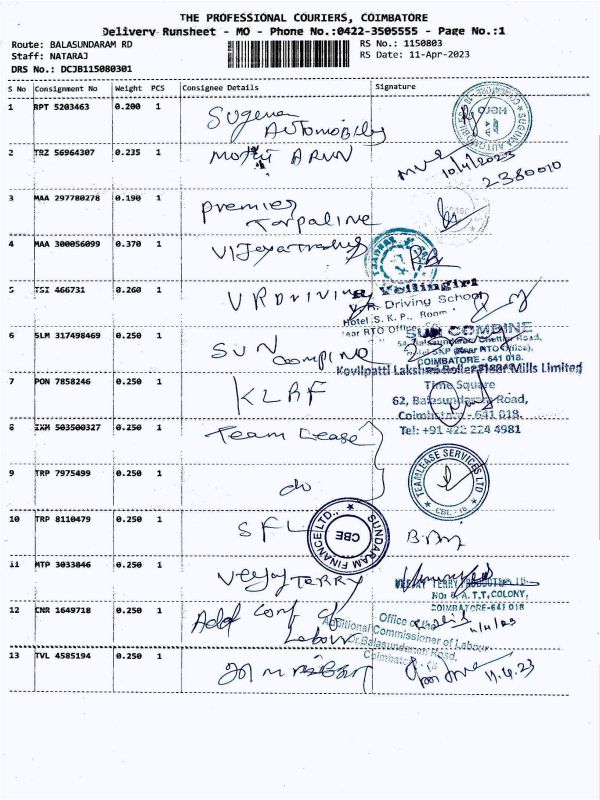 THE PROFESSIONAL COURIERS, COIMBATORE
Delivery Runsheet - MO - Phone No.:0422-3505555 - Page No.:1
Route: BALASUNDARAM RD
RS No.: 1150803
Staff: NATARAJ
RS Date: 11-Apr-2023
DRS No.: DCJB115080301
S No Consignment No Weight PCS Consignee Details Signature
1 RPT 5203463 0.200 1 Suguna
Automobiles
2 TRZ 56964307 0.235 1 ARUN
10/4/2023
2380010
3 MAA 297780278 0.190 1 Premier
Tarpaline
4 MAA 300056099 0.370 1 Vijaya Traders
5 TSI 466731 0.260 1 V R Driving
Vellingiri
V.R. Driving School
Hotel S.K.P., Room
Near RTO Office
6 SLM 317498469 0.250 1 SUN
Combine
SUN COMBINE
COIMBATORE - 641 018.
7 PON 7858246 0.250 1 KLRF
Kovilpatti Lakshmi Roller Flour Mills Limited
Time Square
62, Balasundaram Road,
Coimbatore - 641 018.
Tel: +91 422 224 4981
8 IXM 503500327 0.250 1 Team Lease
9 TRP 7975499 0.250 1 do
TEAMLEASE SERVICES LTD
CBE - 18
10 TRP 8110479 0.250 1 SFL
SUNDARAM FINANCE LTD.,
CBE
11 MTP 3033846 0.250 1 Veejay TERRY
VEEJAY TERRY PRODUCTS LTD
A.T.T. COLONY,
COIMBATORE-641 018
12 CNR 1649718 0.250 1 Addl Com of
Labour
Office of the
Additional Commissioner of Labour
Dr. Balasundaram Road,
Coimbatore - 18
13 TVL 4585194 0.250 1
11.4.23